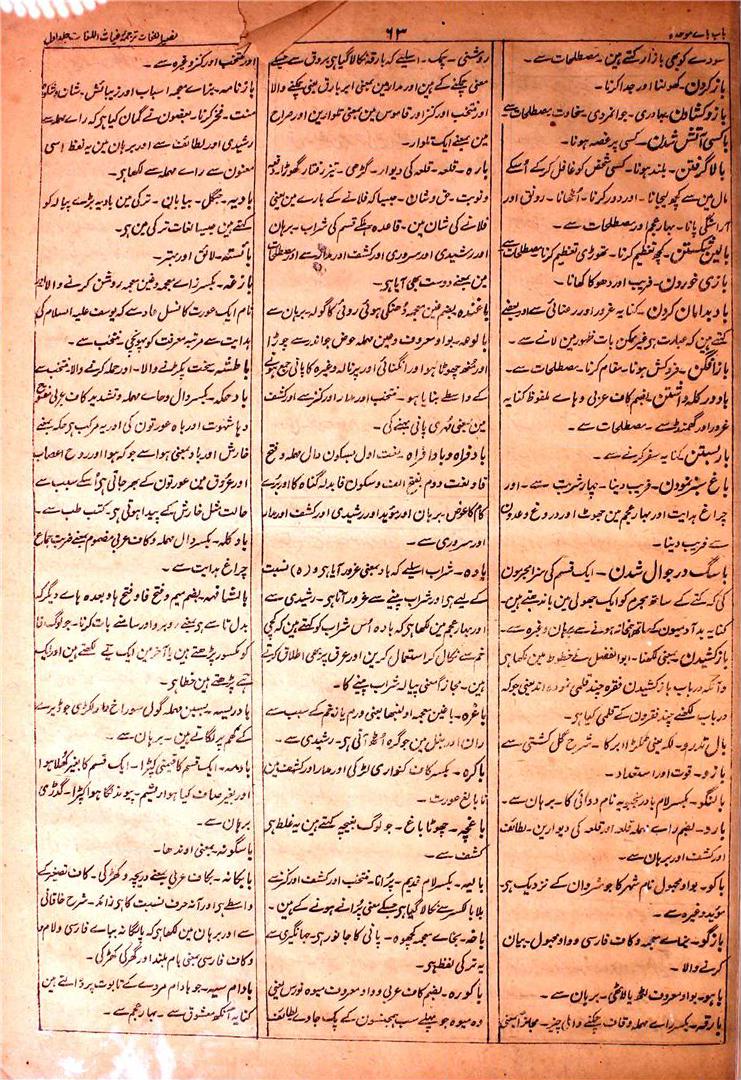 باب باے موحدہ
۶۳
نصیر اللغات ترجمۂ غیاث اللغات جلد اول
سودے کو بھی بازار کہتے ہین۔ مصطلحات سے۔
باز کردن۔ کھولنا اور جدا کرنا۔
بازو کشادن۔ بہادری۔ جوانمردی۔ سخاوت۔ مصطلحات سے
با کسی آتش شدن۔ کسی پر غصہ ہونا۔
بالا گرفتن۔ بلند ہونا۔ کسی شخص کو غافل کر کے اُسکے
مال مین سے کچھ لیجانا۔ اور دور کرنا۔ اُٹھانا۔ رونق اور
آراستگی پانا۔ بہار عجم اور مصطلحات سے۔
بالین شکستن۔ کچھ تعظیم کرنا۔ تھوڑی تعظیم کرنا مصطلحات سے
بازی خوردن۔ فریب اور دھوکا کھانا۔
باد بدامان کردن۔ کنایہ غرور اور رعنائی سے اور بعضے
کہتے ہین کہ عبارت ہی غیر ممکن بات ظہور مین لانے سے۔
بار افگندن۔ فروکش ہونا۔ مقام کرنا۔ مصطلحات سے۔
باد در کلہ داشتن۔ بضم کاف عربی و ہاے ملفوظ کنایہ
غرور اور گھمنڈ سے۔ مصطلحات سے۔
بار بستن۔ کنایہ سفر کرنے سے۔
باغ سبز نمودن۔ فریب دینا۔ بہار شربت سے۔ اور
چراغ ہدایت اور بہار عجم مین جھوٹ اور دروغ وعدون
سے فریب دینا۔
با سگ در جوال شدن۔ ایک قسم کی سزا مجرمون
کی کہ کتے کے ساتھ مجرم کو ایک جھولی مین باندھتے ہین۔
کنایہ بد آدمیون کے ساتھ ہمخانہ ہونے سے۔ برہان وغیرہ سے۔
باز کشیدن۔ بمعنی لکھنا۔ ابو الفضل نے خطوط مین لکھا ہی
و آنکہ در باب باز کشیدن فقرہ چند قلمی نمودہ اند یعنی جو کہ
در باب لکھنے چند فقرون کے قلمی کیا ہو۔
بال تدرو۔ لکہ یعنی ٹکڑا ابر کا۔ شرح گل کشتی سے
بازو۔ قوت اور استعداد۔
بالنگو۔ بکسر لام بادرنجبویہ نام دوائی کا۔ برہان سے۔
بارو۔ بضم راے مہملہ قلعہ اور قلعہ کی دیوارین۔ لطائف
اور کشف اور برہان سے۔
باکو۔ بواو مجہول نام شہر کا جو شروان کے نزدیک ہی
مؤید وغیرہ سے۔
بازگو۔ بزاے معجمہ و کاف فارسی و واو مجہول۔ بیان
کرنے والا۔
باہو۔ بواو معروف لٹھ یا لاٹھی۔ برہان سے۔
بارقہ۔ بکسر راے مہملہ و قاف چمکنے والی چیز۔ مجازاً بمعنی
روشنی۔ چمک۔ اسلیے کہ بارقہ نکالا گیا ہی بروق سے جسکے
معنی چمکنے کے ہین اور مدار مین بمعنی ابر بارق یعنی چمکنے والا
اور منتخب اور کنز اور قاموس مین بمعنی تلوارین اور صراح
مین بمعنے ایک تلوار۔
بارہ۔ قلعہ۔ قلعہ کی دیوار۔ گڑھی۔ تیز رفتار گھوڑا۔ دفعہ
و نوبت۔ حق و شان۔ جیسا کہ فلانے کے بارے مین یعنی
فلانے کی شان مین۔ قاعدہ۔ ایک قسم کی شراب۔ برہان
اور رشیدی اور سروری اور کشف اور مدار سے اور مصطلحات
مین بمعنے دوست بھی آیا ہی۔
باغندہ۔ بضم غین معجمہ دُھنکی ہوئی روئی کا گولہ برہان سے
بالوعہ۔ بواو معروف و عین مہملہ حوض جو اندر سے چوڑا
اور منھ چھوٹا ہو اور انگنائی اور پرنالہ وغیرہ کا پانی جمع ہونے
کے واسطے بنایا ہو۔ منتخب اور مدار اور کنز سے اور کشف
مین بمعنی مُہری پانی بہنے کی۔
بادفراہ و بادافراہ۔ لغت اول بسکون دال مہملہ و فتح
فا و لغت دوم بفتح الف و سکون فا بدلہ گناہ کا اور بُرے
کام کا عوض۔ برہان اور مؤید اور رشیدی اور کشف اور مدار
اور سروری سے۔
بادہ۔ شراب اسلیے کہ باد بمعنی غرور آیا ہی و (ہ) نسبت
کے لیے ہی اور شراب پینے سے غرور آتا ہی۔ رشیدی سے
اور بہار عجم مین لکھا ہی کہ بادہ اُس شراب کو کہتے ہین کہ کچی
خم سے نکال کر استعمال کرین اور عرق پر بھی اطلاق کرتے
ہین۔ مجازاً بمعنی پیالہ شراب پینے کا۔
باغرہ۔ باغین معجمہ اولتہا یعنی ورم یا زخم کے سبب سے
ران اور بغل مین جو گرہ اُٹھ آتی ہی۔ رشیدی سے۔
باکرہ۔ بکسر کاف کنواری لڑکی اور مدار اور کشف مین
نابالغ عورت۔
باغچہ۔ چھوٹا باغ۔ جو لوگ بغیچہ کہتے ہین یہ غلط ہی
کشف سے۔
بالیہ۔ بکسر لام قدیم۔ پُرانا۔ منتخب اور کشف اور کنز سے
بلا بالکسر سے نکالا گیا ہی جسکے معنی پُرانے ہونے کے ہین۔
باخہ۔ بخاے معجمہ کچھوہ۔ پانی کا جانور ہی۔ جہانگیری سے
یہ ترکی لفظ ہی۔
باکورہ۔ بضم کاف عربی و واو معروف میوہ نورس یعنی
وہ میوہ جو پہلے سب ہمجنسون کے پک جاوے لطائف
اور منتخب اور کنز وغیرہ سے۔
بازنامہ۔ بزاے معجمہ اسباب اور زیبائش۔ شان و شکوہ
منت۔ فخر کرنا۔ بعضون نے گمان کیا ہی کہ راے مہملہ سے
رشیدی اور لطائف سے اور برہان مین یہ لفظ اسی
معنون سے راے مہملہ سے لکھا ہی۔
بادیہ۔ جنگل۔ بیابان۔ ترکی مین بادیہ بڑے پیالہ کو
کہتے ہین جیسا لغات ترکی مین ہی۔
بائستہ۔ لائق اور بہتر۔
بازغہ۔ بکسر زاے معجمہ و غین معجمہ روشن کرنے والا اور
نام ایک عورت کا نسل عاد سے کہ یوسف علیہ السلام کی
ہدایت سے مرتبہ معرفت کو پہونچی۔ منتخب سے۔
باطشہ۔ سخت پکڑنے والا۔ اور حملہ کرنے والا۔ منتخب سے
بادحکہ۔ بکسر دال و حاے مہملہ و تشدید کاف عربی مفتوح
دہا شہوت اور باہ عورتون کی اور یہ مرکب ہی حکہ بمعنے
خارش اور باد بمعنی ہوا سے جو کہ ہوا اور روح اعصاب
اور عروق مین عورتون کے بھر جاتی ہی اُسکے سبب سے
حالت مثل خارش کے پیدا ہوتی ہی۔ کتب طب سے۔
بادکلہ۔ بکسر دال مہملہ و کاف عربی مضموم بمعنے ضرب جماع
چراغ ہدایت سے۔
بالمشافہہ۔ بضم میم و فتح فا و فتح ہا و بعدہ ہاے دیگر کہ
بدل تا سے ہی بمعنے روبرو اور سامنے بات کرنا۔ جو لوگ فا
کو مکسور پڑھتے ہین یا آخر مین ایک تے لکھتے ہین اور ایک
ہے پڑھتے ہین خطا ہی۔
بادریسہ۔ بسین مہملہ گول سوراخ دار لکڑی جو ڈیرے
کے کھم پر لگاتے ہین۔ برہان سے۔
بادمہ۔ ایک قسم کا قیمتی کپڑا۔ ایک قسم کا بغیر کھُلا ہوا
اور بغیر صاف کیا ہوا ریشم۔ پیوند لگا ہوا کپڑا۔ گدڑی
برہان سے۔
باسگونہ۔ بمعنی اوندھا۔
بالکانہ۔ بکاف عربی بمعنے دریچہ و کھڑکی۔ کاف تصغیر کے
واسطے ہی اور آنہ حرف نسبت کا ہی زائد۔ شرح خاقانی
سے اور برہان مین لکھا ہی کہ پالگانہ بباے فارسی و لام و
و کاف فارسی بمعنی بام بلند اور گھر کی کھڑکی۔
بادام سیہ۔ جو بادام مردے کے تابوت پر ڈالتے ہین
کنایہ آنکھ معشوق سے۔ بہار عجم سے۔